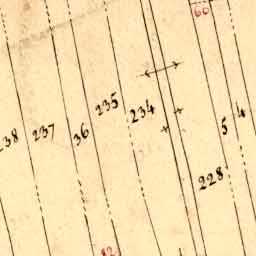 60
238
237
36
235
234
5
4
228